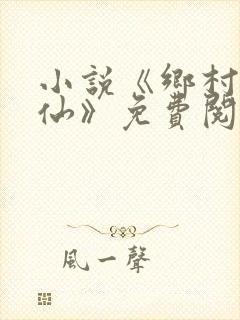 小説《鄉村
仙》免費閱
風一聲